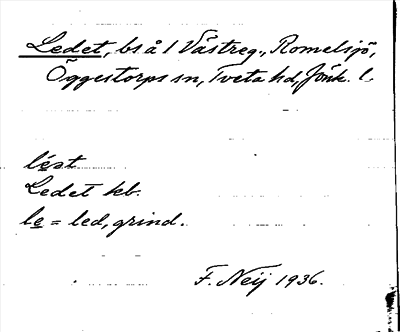 Ledet, bs å 1 Västreg., Romelsjö,
Öggestorps sn, Tveta hd, Jönk. l.
léət
Ledet kb.
le = led, grind.
F. Neij 1936.